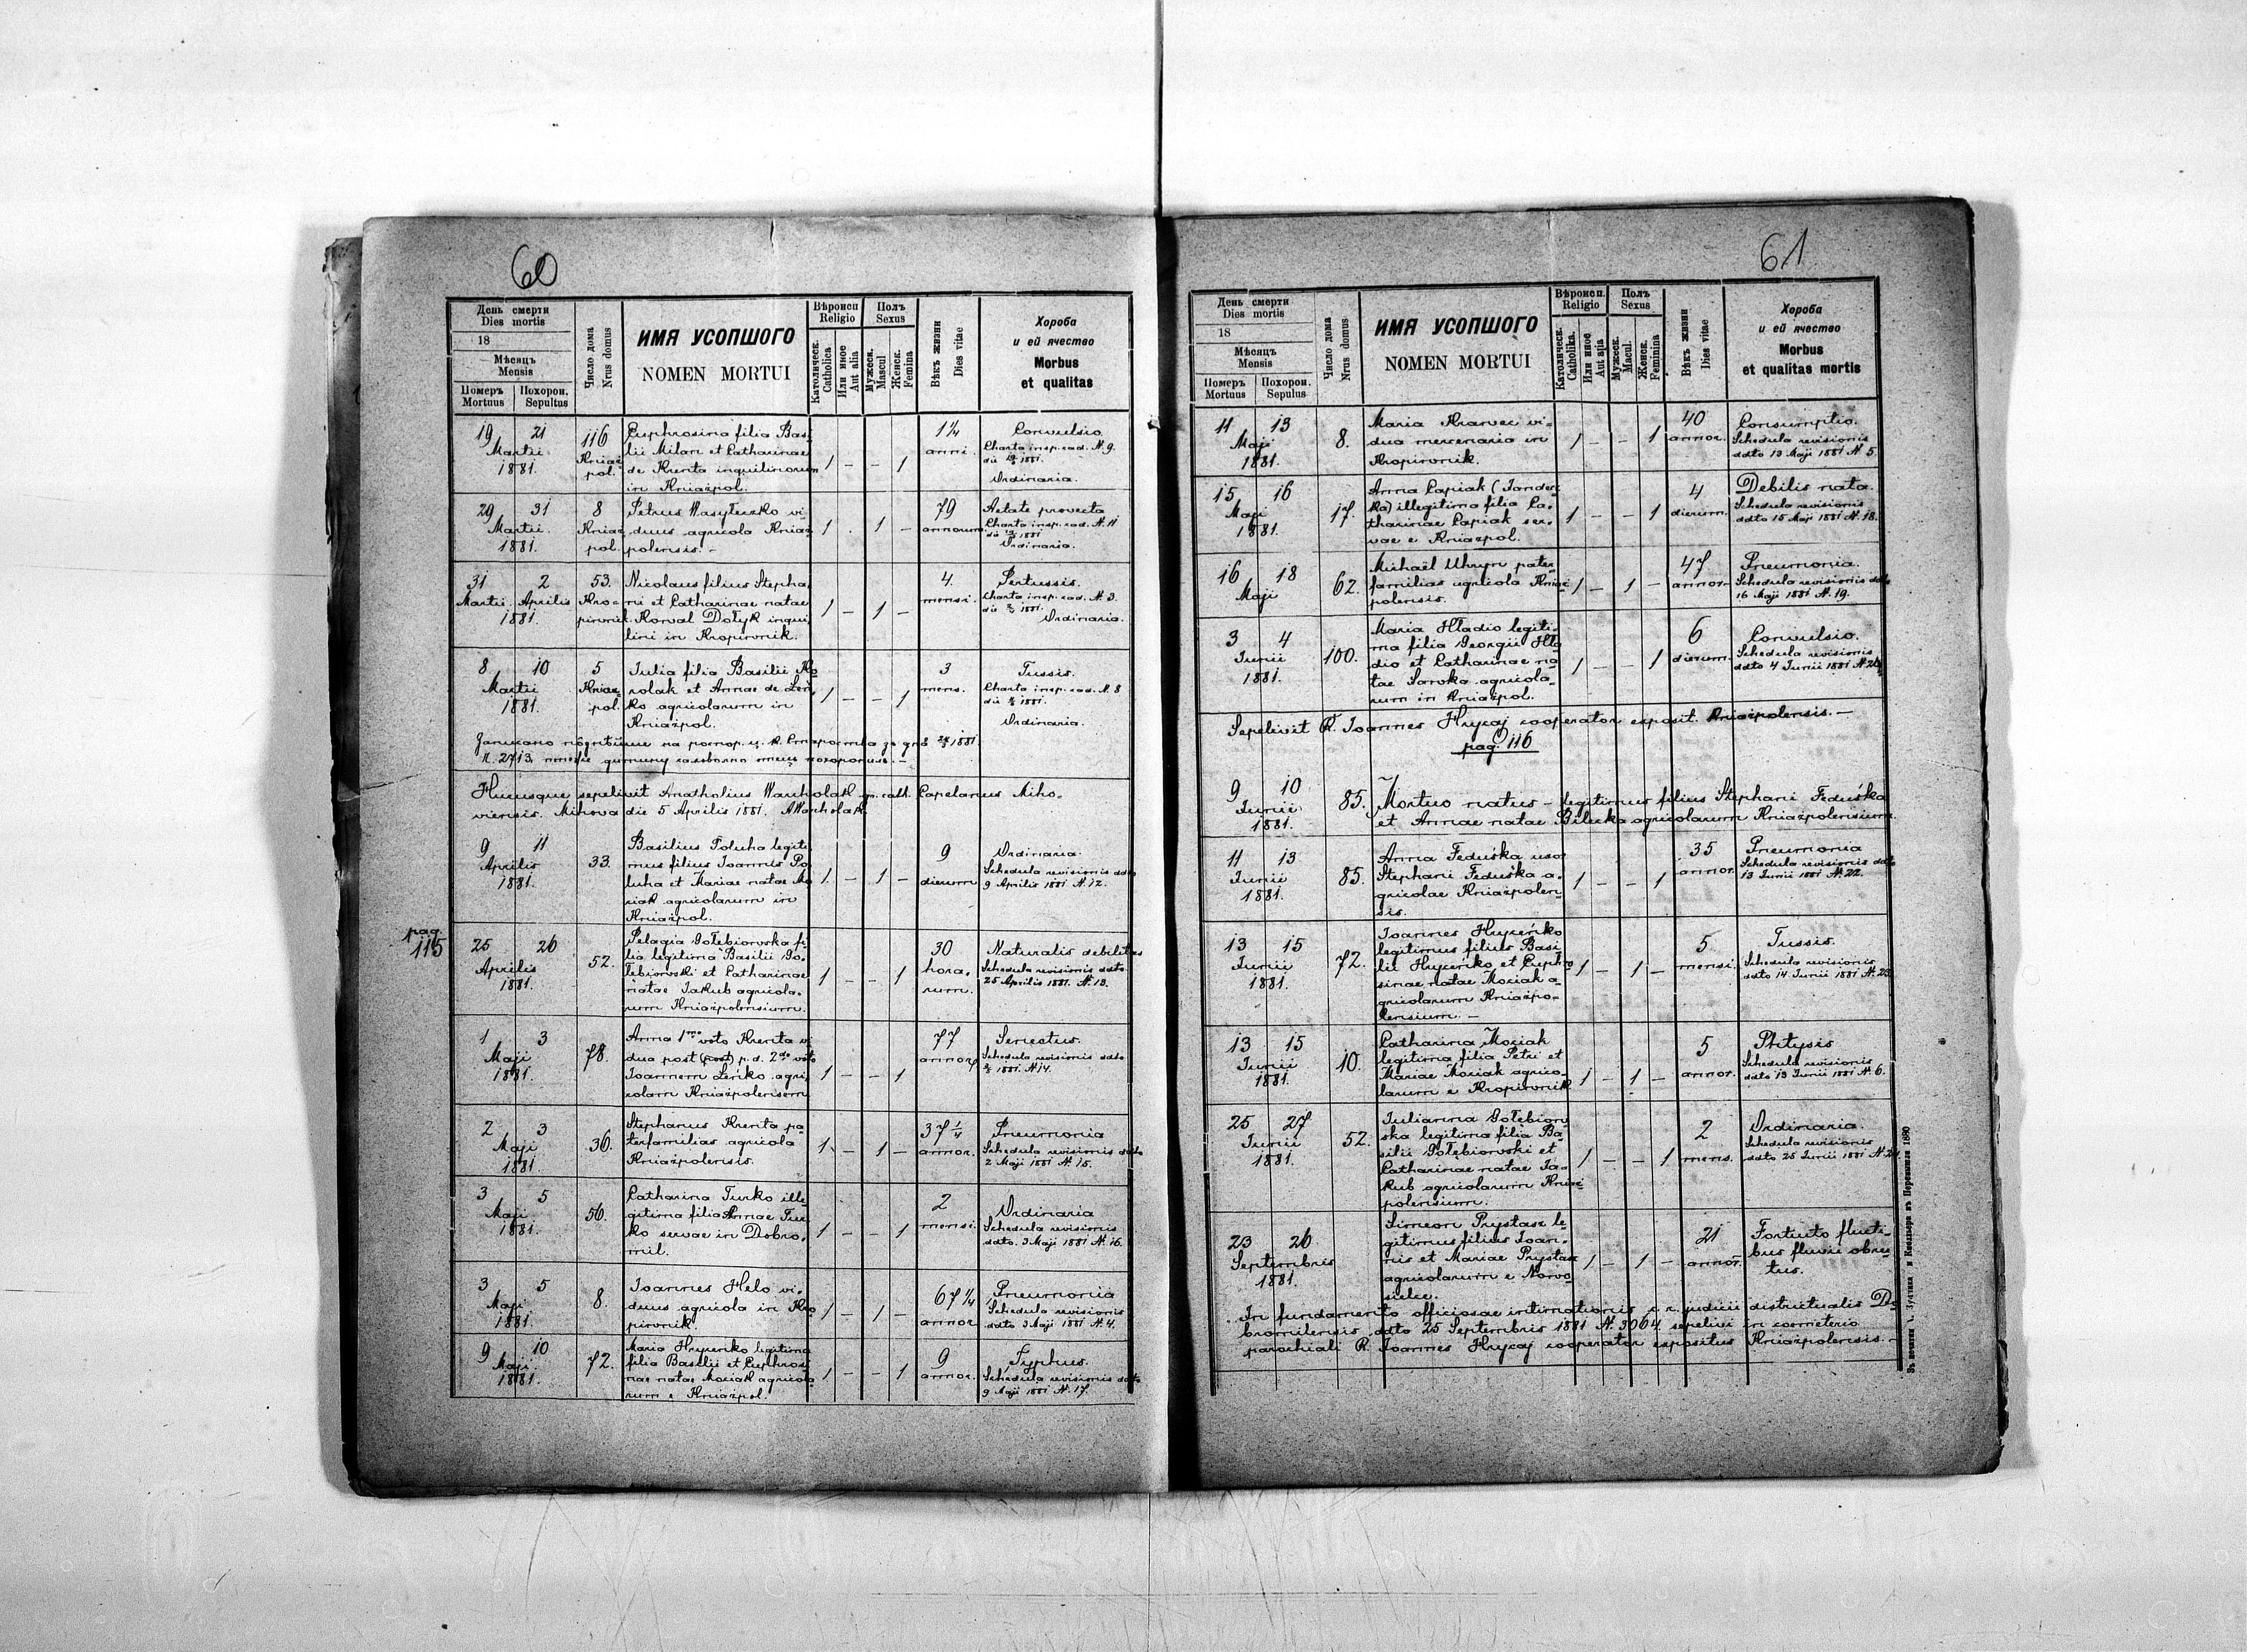 60
День смерти
Dies mortis
18
Мѣсяцъ
Mensis
Померъ
Mortuus
Похорон.
Sepultus
Число дома
Nrus domus
ИМЯ УСОПШОГО
NOMEN MORTUI
Вѣроисп
Religio
Католическ.
Catholica
Или иное
Aut alia
Полъ
Sexus
Мужеск.
Mascul
Женск.
Femina
Вѣкъ жизни
Dies vitae
Хороба
и ей ячество
Morbus
et qualitas
19 21
Martii
1881.
116
Kniaź
pol.
Euphrosina filia Basi
lii Milan et Catharinae
de Krenta inquilinorum
in Kniażpol.
1 – – 1
1¼
anni.
Convulsio
Charta insp. cad. N. 9.
Ordinaria.
29 31
Martii.
1881.
8
Kniaż
pol.
Petrus Wasyłeczko vi-
duus agricola Kniaż
polensis. –
1 . 1 –
79
annorum
Aetate provecta
Charta insp. cad. N. 11
Ordinaria.
31 2
Martii. Aprilis
1881.
53.
Kro-
piwnik.
Nicolaus filius Stepha
ni et Catharinae natae
Kowal Dołyk inqui
lini in Kropiwnik.
1 – 1 –
4.
mensi.
Pertussis.
Charta insp. cad. N. 3.
Ordinaria.
8 10
Martii
1881.
5
Kniaż
pol.
Julia filia Basilii Ko
rolak et Annae de Łeń
ko agricolarum in
Kniażpol.
1 – – 1
3
mens.
Tussis.
Charta insp. cad. N. 8
Ordinaria.
Hucusque sepelivit Anatholius Wanholak gr. cath. Capelanus Miho-
viensis. Mihova die 5 Aprilis 1881. AWanholak
9 11
Aprilis
1881.
33.
Basilius Poluha legiti
mus filius Joannis Po
luha et Mariae natae Mo
ciak agricolarum in
Kniażpol.
1. – 1 –
9
dierum
Ordinaria.
Schedula revisionis ddto
9 Aprilis 1881 N. 12.
pag.
115
25 26
Aprilis
1881.
52.
Pelagia Gołębiowska fi-
lia legitima Basilii Go-
łębiowski et Catharinae
natae Jakub agricola-
rum Kniażpolensium.
1 – – 1
30
hora-
rum.
Naturalis debilitas
Schedula revisionis ddto
25 Aprilis 1881. N. 13.
1 3
Maji
1881.
78.
Anna 1mo voto Krenta vi
dua post (post) p. d. 2do voto
Joannem Łeńko agri-
colam Kniażpolensem
1 – – 1
77
annor.
Senectus.
Schedula revisionis ddto
1881. N. 14.
2 3
Maji
1881.
36.
Stephanus Krenta pa-
terfamilias agricola
Kniażpolensis.
1. – 1 –
37¼
annor.
Pneumonia
Schedula revisionis ddto
2 Maji 1881 N. 15.
3 5
Maji
1881.
56.
Catharina Turko ille-
gitima filia Annae Tur
ko servae in Dobro-
mil.
1 – – 1
2
mensi.
Ordinaria
Schedula revisionis
ddto. 3 Maji 1881 N. 16.
3 5
Maji
1881.
8.
Joannes Helo vi-
duus agricola in Kro
piwnik.
1 – 1 –
67¼
annor
Pneumonia
Schedula revisionis
ddto 3 Maji 1881 N. 4.
9 10
Maji
1881.
72.
Maria Hryceńko legitima
filia Basilii et Euphrosi
nae natae Mociak agricola
rum e Kniażpol.
1 – – 1
9
annor.
Typhus.
Schedula revisionis ddto
9 Maji 1881 N. 17.
61
День смерти
Dies mortis
18
Мѣсяцъ
Mensis
Померъ
Mortuus
Похорон.
Sepulus
Число дома
Nrus domus
ИМЯ УСОПШОГО
NOMEN MORTUI
Вѣроисп.
Religio
Католическ.
Catholika.
Или иное
Aut alia
Полъ
Sexus
Мужеск.
Macul.
Женск.
Feminina
Вѣкъ жизни
Dies vitae
Хороба
и ей ячество
Morbus
et qualitas mortis
11 13
Maji
1881.
8.
Maria Krawec vi-
dua mercenaria in
Kropiwnik.
1 – – 1
40
annor.
Consumptio.
Schedula revisionis
ddto 13 Maji 1881 N. 5.
15 16
Maji
1881.
17.
Anna Capiak (Jander-
ka) illegitima filia Ca-
tharinae Capiak ser-
vae e Kniażpol.
1 – – 1
4
dierum.
Debilis nata.
Schedula revisionis
ddto 15 Maji 1881 N. 18.
16 18
Maji
62.
Michaël Uhryn pater
familias agricola Kniaż
polensis.
1 – 1 –
47
annor.
Pneumonia.
Schedula revisionis ddto
16 Maji 1881 N. 19.
3 4
Junii
1881.
100.
Maria Hładio legiti-
ma filia Georgii Hła
dio et Catharinae na
tae Saroka agricola-
rum in Kniażpol.
1 – – 1
6
dierum.
Convulsio.
Schedula revisionis
ddto 4 Junii 1881 N. 20.
Sepelivit R. Joannes Hrycaj cooperator exposit. Kniażpolensis. –
pag. 116
9 10
Junii
1881.
85.
Mortuo natus – legitimus filius Stephani Feduśka
et Annae natae Bilecka agricolarum Kniażpolensium.
11 13
Junii
1881.
85.
Anna Feduśka uxor
Stephani Feduśka a-
gricolae Kniażpolen
sis.
1 – – 1
35
annor.
Pneumonia
Schedula revisionis ddto
13 Junii 1881 N. 22.
13 15
Junii
1881.
72.
Joannes Hryceńko
legitimus filius Basi
lii Hryceńko et Euphro
sinae natae Mociak a-
gricolarum Kniażpo-
lensium. –
1 – 1 –
5
mensi.
Tussis.
Schedula revisionis
ddto 14 Junii 1881 N. 23.
13 15
Junii
1881.
10.
Catharina Mociak
legitima filia Petri et
Mariae Mociak agrico-
larum e Kropiwnik
1 – 1 –
5
annor.
Phtysis
Schedula revisionis
ddto 13 Junii 1881 N. 6.
25 27
Junii
1881.
52.
Julianna Gołębiow
ska legitima filia Ba-
silii Gołębiowski et
Catharinae natae Ja-
kub agricolarum Kniaż
polensium.
1 – – 1
2
mens.
Ordinaria.
Schedula revisionis
ddto 25 Junii 1881 N. 24.
23 26
Septembris
1881.
Simeon Prystasz le-
gitimus filius Joan-
nis et Mariae Prystasz
agricolarum e Nowo
sielce.
1 – 1 –
21
annor.
Fortuito flucti-
bus fluvii obru-
tus.
In fundamento officiosae intimationis c. r. judicii districtualis Do
bromilensis ddto 25 Septembris 1881 N. 3064. sepelivi in coemeterio
parochiali R. Joannes Hrycaj cooperator expositus Kniażpolensis. –